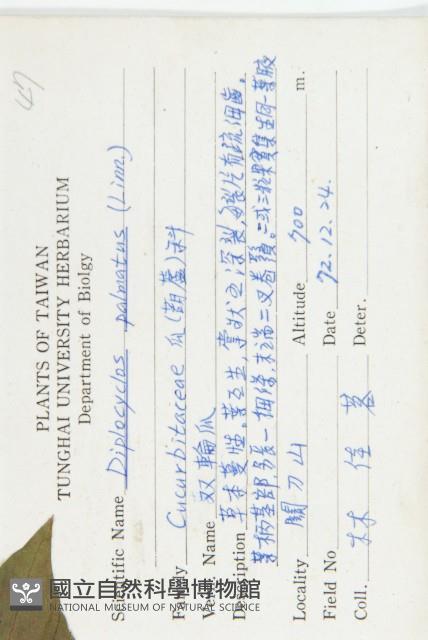 47
PLANTS OF TAIWAN
TUNGHAI UNIVERSITY HERBARIUM
Department of Biolgy
Scientific Name Diplocyclos palmatus (Linn.)
Family Cucurbitaceae 瓜(葫蘆)科
Name 双輪瓜
Description 草本蔓性,葉互生,掌狀五深裂,每裂片有疏細齒,
葉柄基部 一捲鬚,末端二叉卷鬚。二或三粒果實集生同一葉腋
Locality 關刀山 Altitude 700 m.
Field No Date 72.12.24.
Coll. 林 Deter.
國立自然科學博物館
NATIONAL MUSEUM OF NATURAL SCIENCE